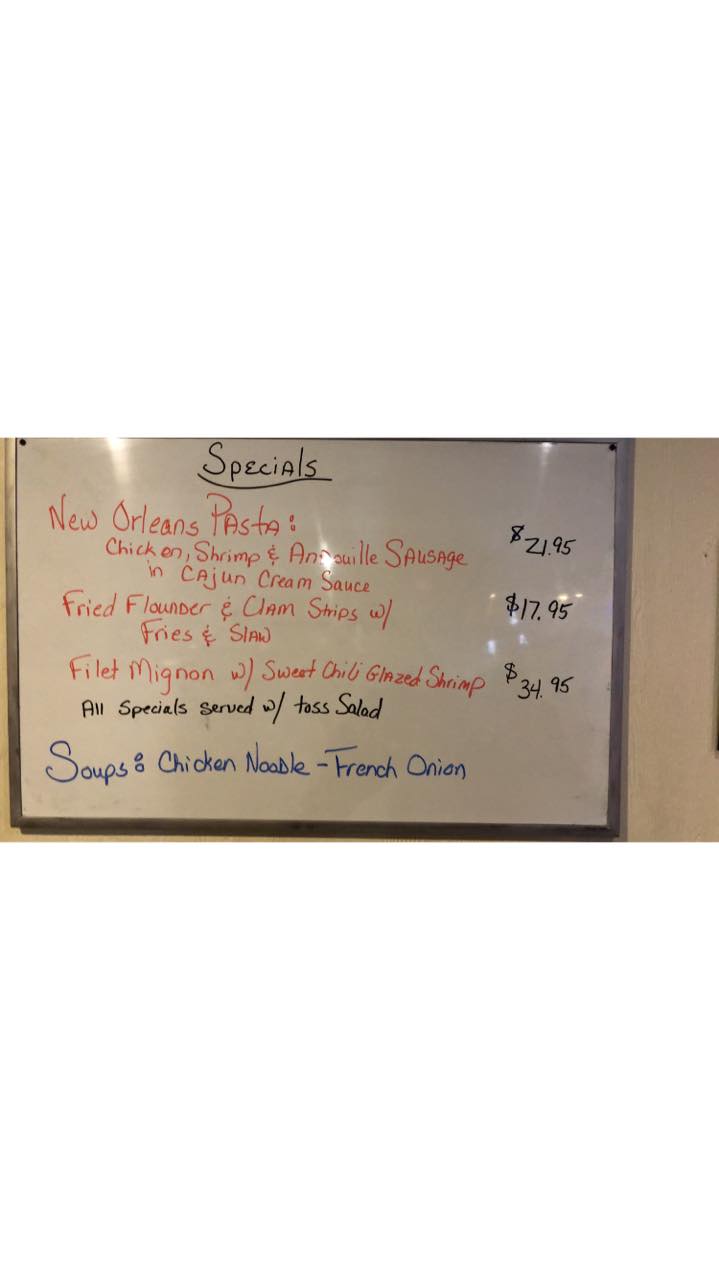 Specials
New Orleans Pasta:
Chicken, Shrimp & Andouille Sausage
in Cajun Cream Sauce
$21.95
Fried Flounder & Clam Strips w/
Fries & Slaw
$17.95
Filet Mignon w/ Sweet Chili Glazed Shrimp $34.95
All Specials served w/ toss Salad
Soups: Chicken Noodle - French Onion